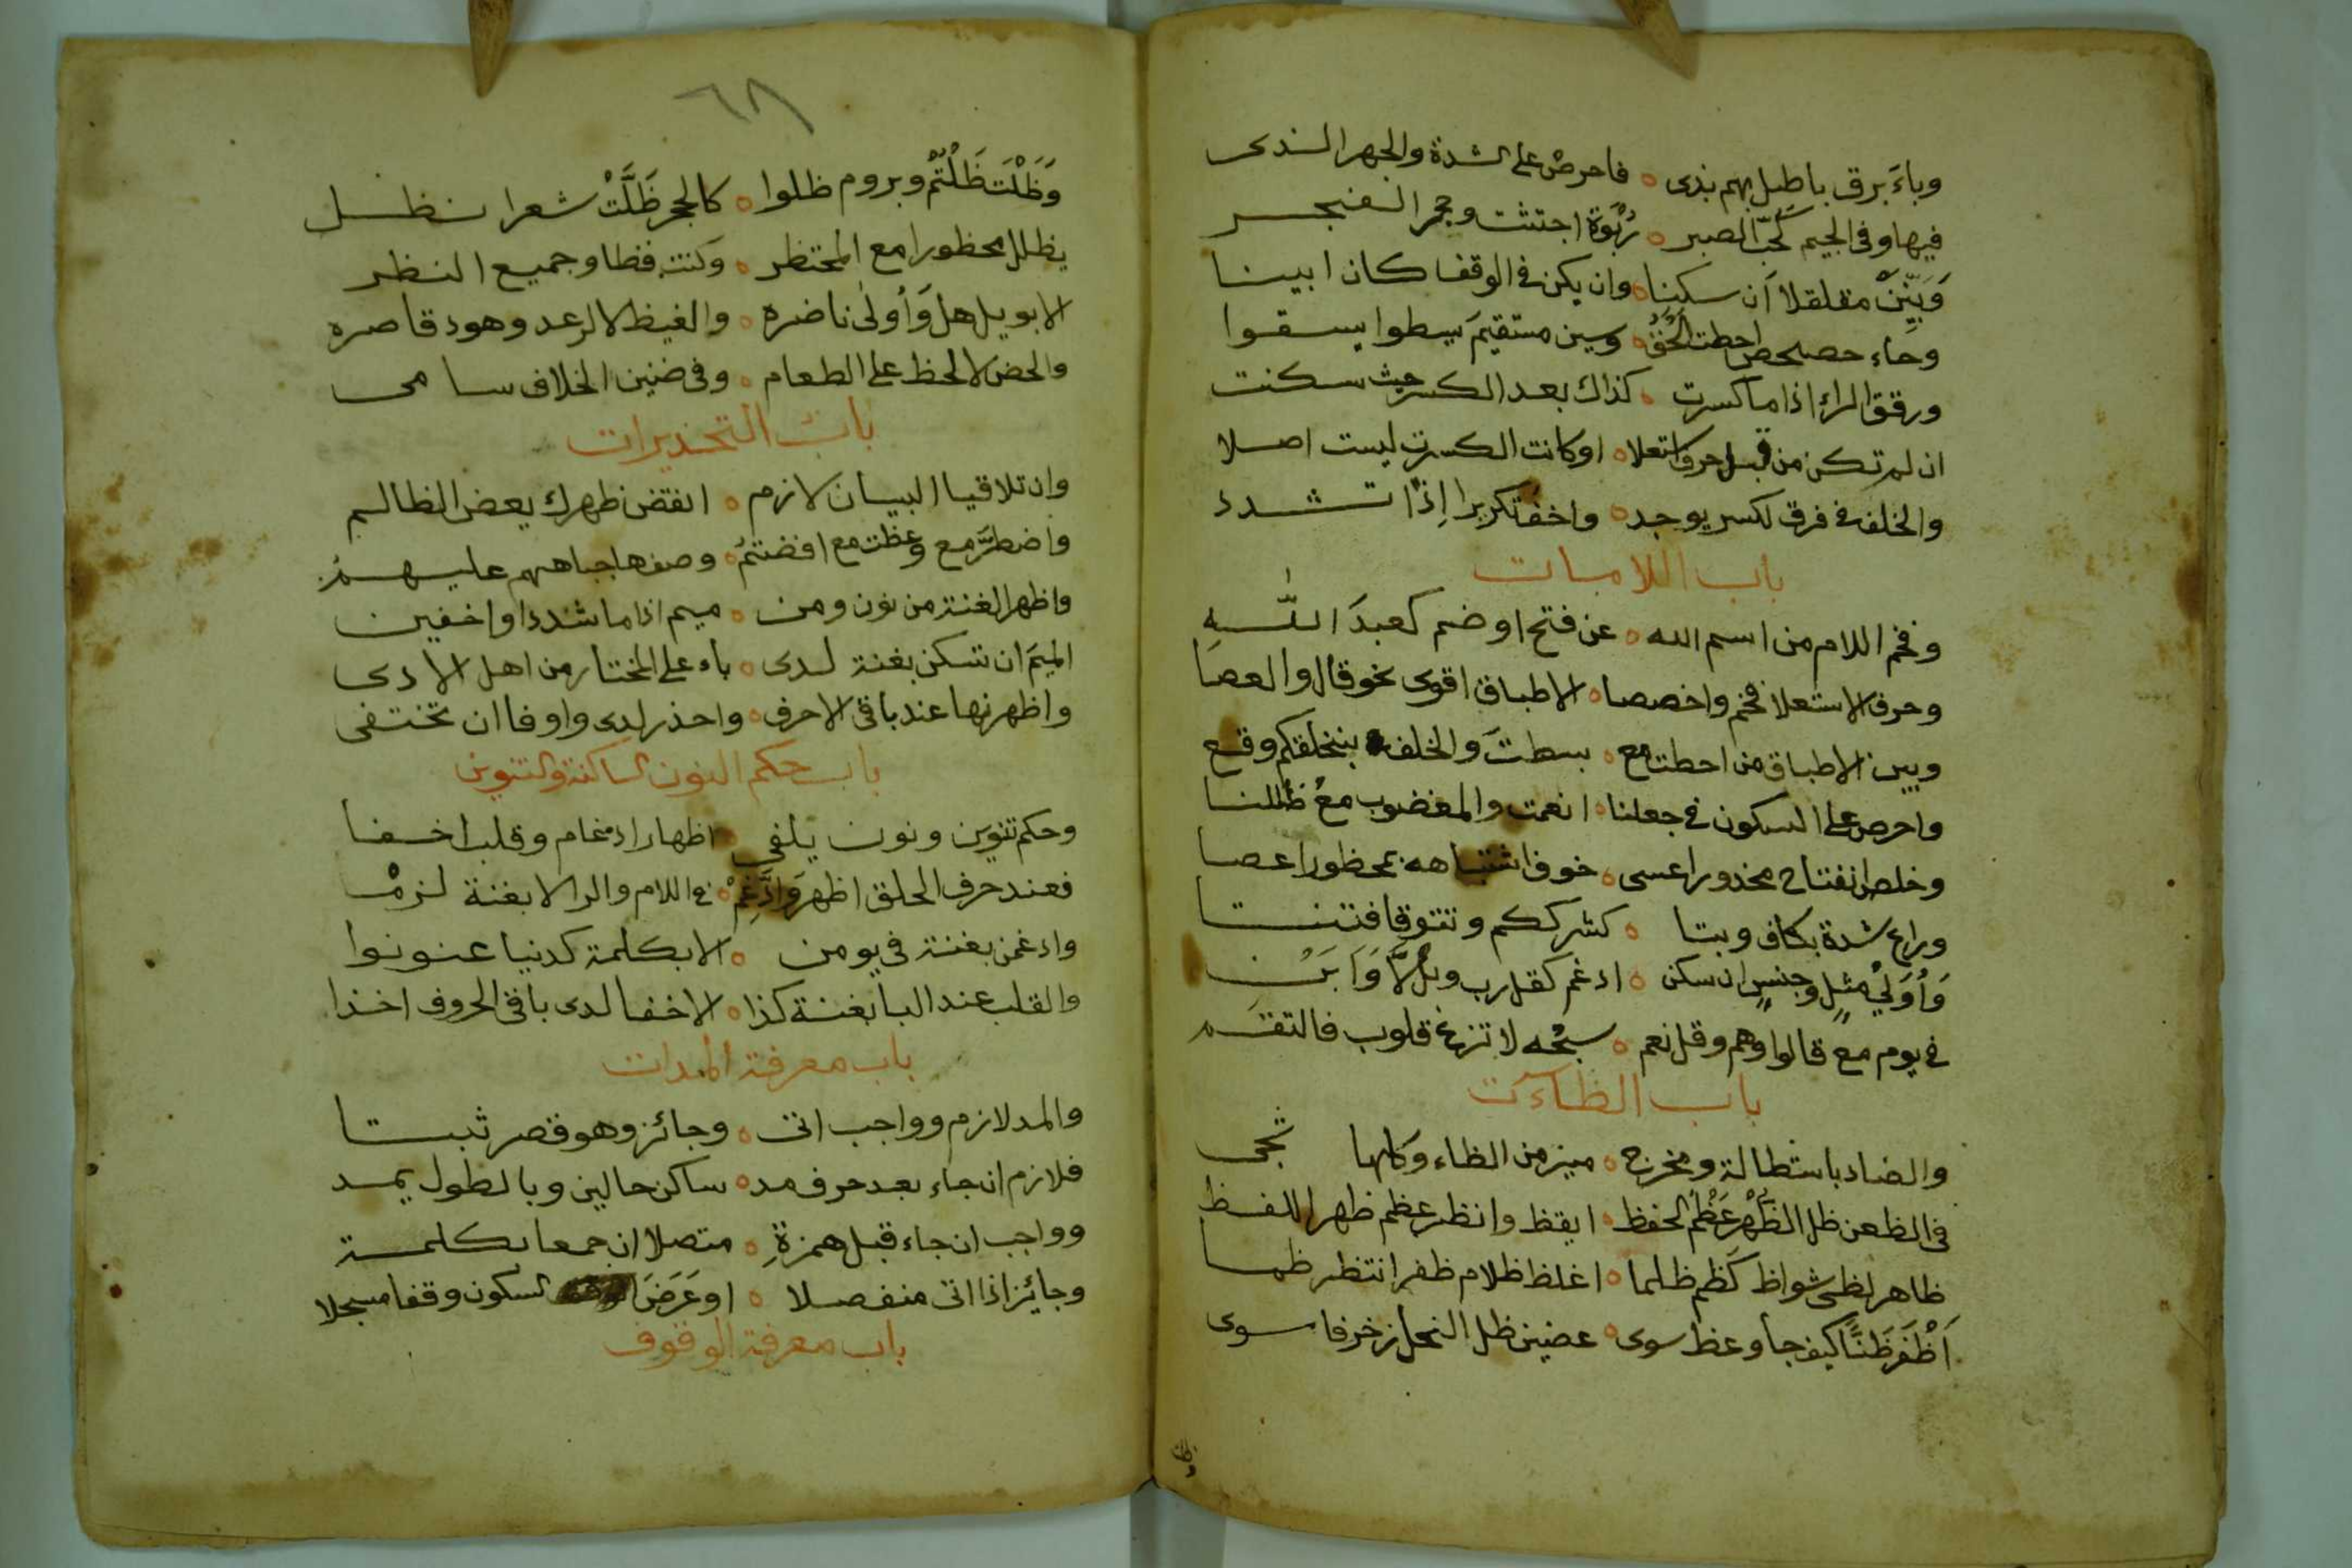 وباء برق باطل بهم بذى ه فاحرص على الشدة والجهر الذى
فيها وفى الجيم كحب الصبر ه ربوة اجتثت وحجر الفجر
وَبَيِّنَنْ مقلقلا ان سكنا ه وان يكن فى الوقف كان ابينا
وحاء حصحص احطت الحق ه وسين مستقيم يسطوا يسقوا
ورقق الراء اذا ما كسرت ه كذاك بعد الكسر حيث سكنت
ان لم تكن من قبل حرف استعلا ه او كانت الكسرة ليست اصلا
والخلف فى فرق لكسر يوجد ه واخف تكريرا اذا تشدد
باب اللامات
وفخم اللام من اسم الله ه عن فتح او ضم كعبدَ اللّه
وحرف الاستعلا فخم واخصصا ه الاطباق اقوى نحو قال والعصا
وبين الاطباق من احطت مع ه بسطت والخلف بنخلقكم وقع
واحرص على السكون فى جعلنا ه انعمت والمغضوب مع ظللنا
وخلص انفتاح محذورا عسى ه خوف اشتباهه بمحظورا عصا
وراع شدة بكاف وبتا ه كشرككم وتتوفا فتنتا
وَاُوَلَىْ مثلٍ وجنسٍ ان سكن ه ادغم كقل رب وبل لَّا وَاَبَنْ
فى يوم مع قالوا وهم وقل نعم ه سبحه لا تزغ قلوب فالتقم
باب الظاآت
والضاد باستطالة ومخرج ه ميز من الظاء وكلها تجى
فى الظعن ظل الظُّهْر عَظْم الحفظ ه ايقظ وانظر عظم ظهر اللفظ
ظاهر لظى شواظ كظم ظلما ه اغلظ ظلام ظفر انتظر ظما
اَظْفَرَ ظَنًّا كيف جا وعظ سوى ه عضين ظل النحل زخرفا سوى
وظلت
٦٨
وَظَلْتَ ظَلْتُمْ وبروم ظلوا ه كالحجر ظَلَّتْ شعرا نظل
يظللن محظورا مع المحتظر ه وكنت فظا وجميع النظر
الا بويل هل وَاُولى ناضره ه والغيظ لا الرعد وهود قاصره
والحض لا الحظ على الطعام ه وفى ضنين الخلاف سامى
باب التحذيرات
وان تلاقيا البيان لازم ه انقض ظهرك يعض الظالم
واضطرَّ مع وعظت مع افضتمُ ه وصف ها جباههم عليهمُ
واظهر الغنة من نون ومن ه ميم اذا ما شددا واخفين
الميم ان تسكن بغنة لدى ه باء على المختار من اهل الادى
واظهرنها عند باقى الاحرف ه واحذر لدى واو وفا ان تختفى
باب حكم النون الساكنة والتنوين
وحكم تنوين ونون يلفى اظهار ادغام وقلب اخفا
فعند حرف الحلق اظهر وَادَّغِمْ ه فى اللام والرا لا بغنة لزم
وادغمن بغنة فى يومن ه الا بكلمة كدنيا عنونوا
والقلب عند البا بغنة كذا ه الاخفا لدى باقى الحروف اخذا
باب معرفة المدات
والمد لازم وواجب اتى ه وجائز وهو وقصر ثبتا
فلازم ان جاء بعد حرف مد ه ساكن حالين وبالطول يمد
وواجب ان جاء قبل همزةِ ه متصلا ان جمعا بكلمة
وجائز اذا اتى منفصلا ه او عَرَضَ السكون وقفا مسجلا
باب معرفة الوقوف